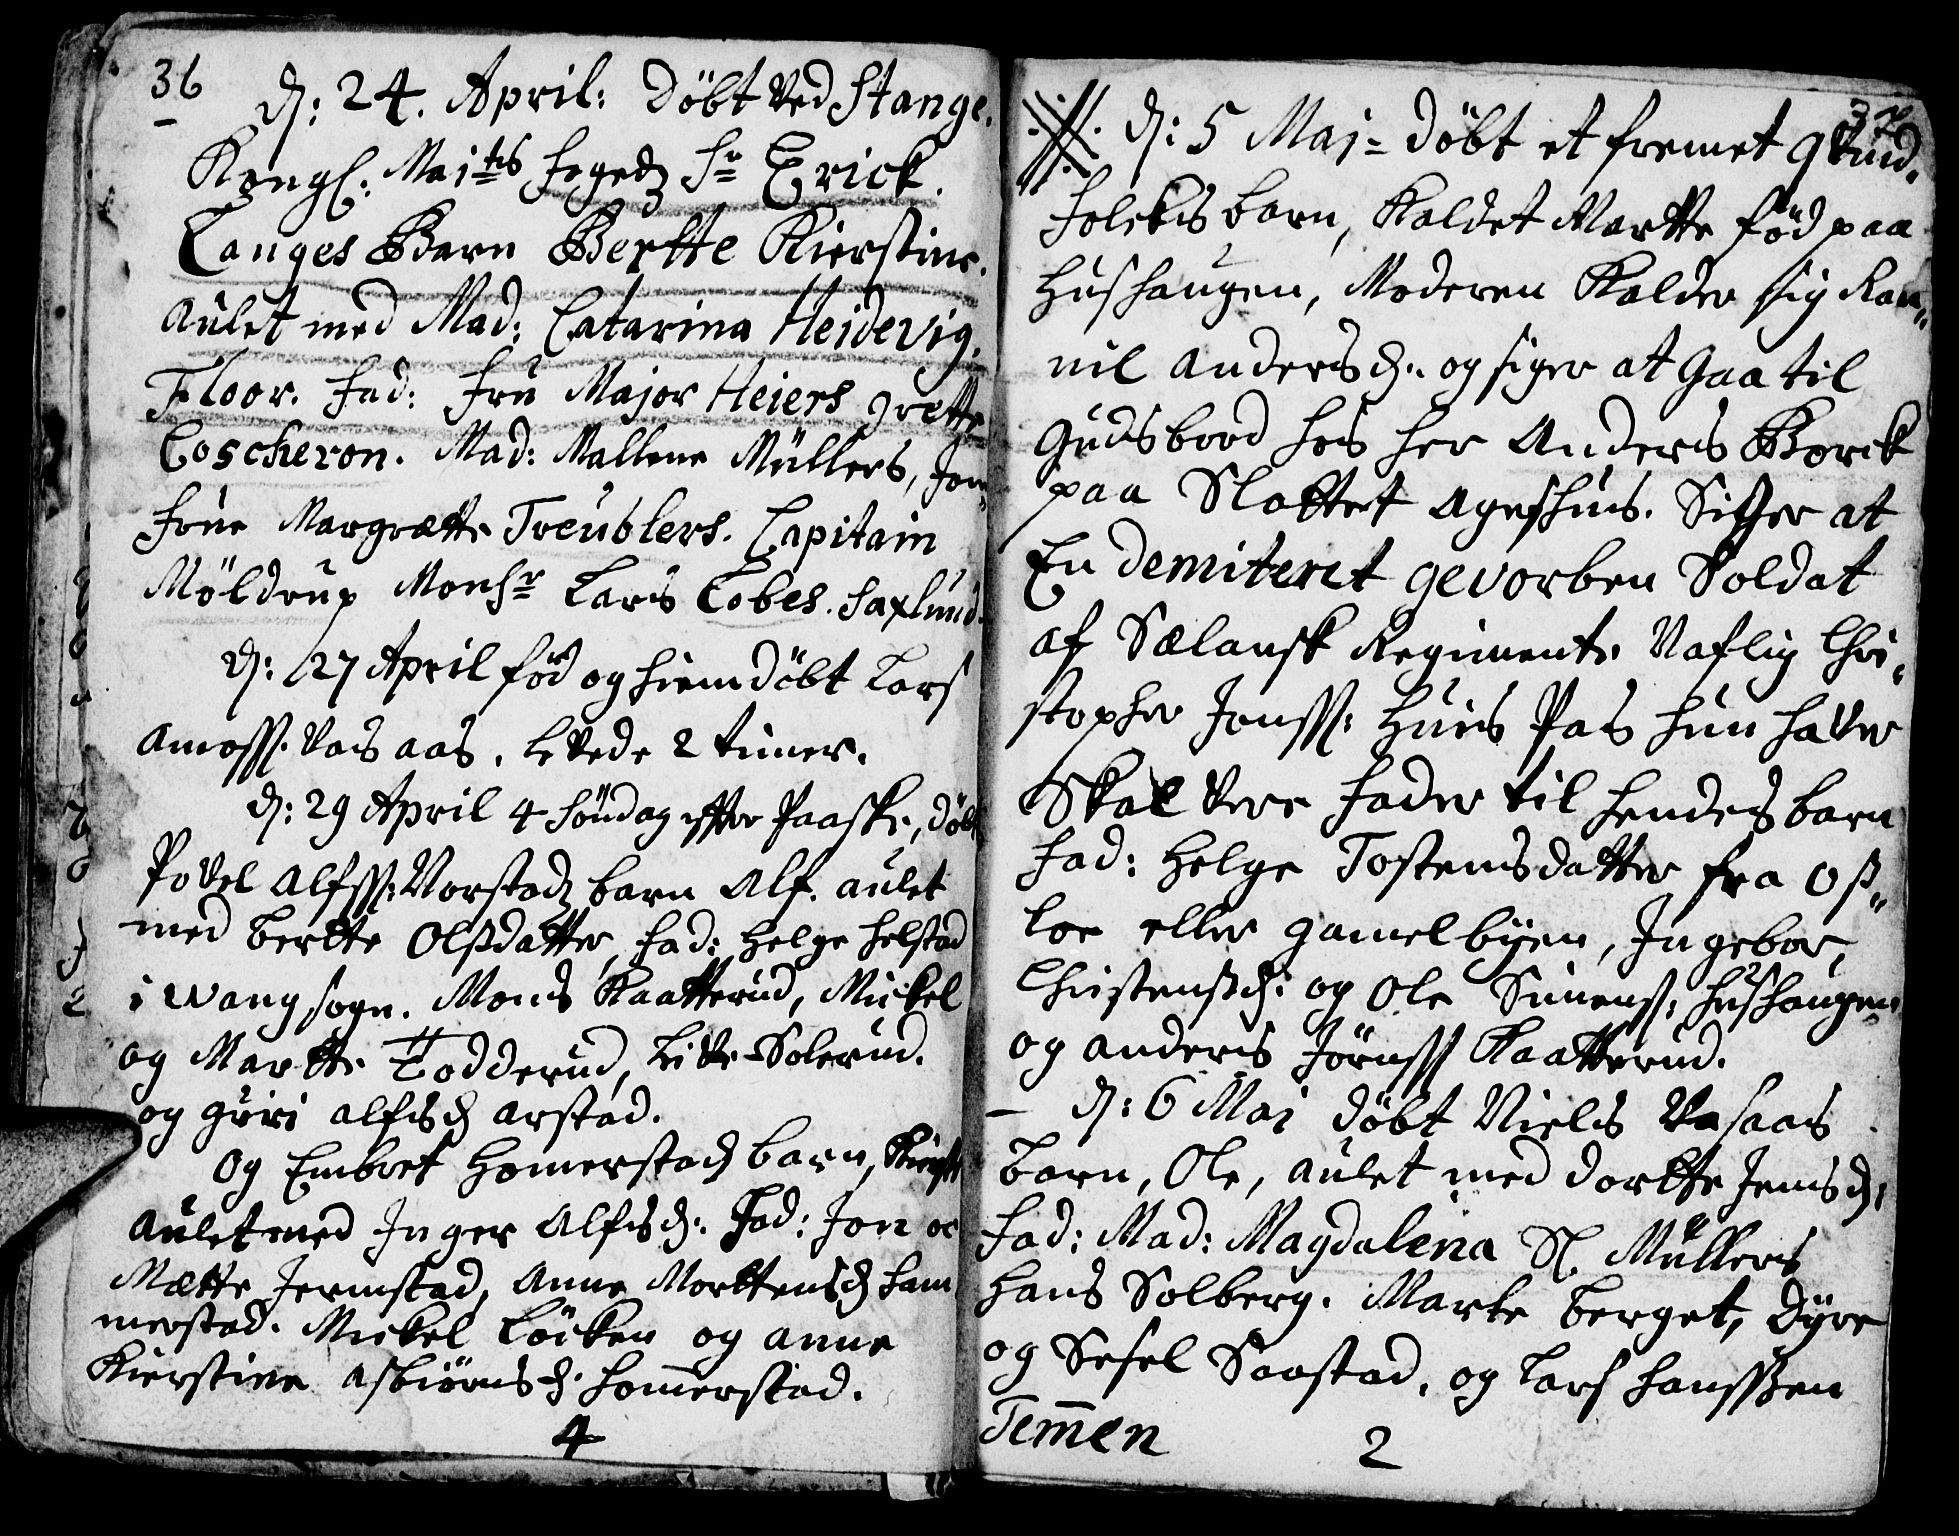 36
d: 24. April: döbt ved Stange.
Kongl: Maj:ts fogedz Sr Erick.
Langes Barn Berthe Kierstine.
aulet med Mad: Catarina Heidevig.
Floor. Fad: fru Major Heiers grette
Coscheron. Mad: Mallene Müllers, Jom„
frue Margrætte Treublers. Capitain
Möldrup Monsr Lars Cobes. Saxlund.
d: 27 April föd og hiemdöbt Lars
Amosss. Vas aas. levede 2 timer.
d: 29 April 4 Söndag effter Paaske, döbt
Povel Alfsss: Norstadz barn Alf. aulet
med Berthe Olsdatter, fad: Helge Helstad
i Wang sogn. Mons Kaatterud, Mickel
og Marthe Todderud, Live Solerud.
og guri alfisd arstad.
Og Embret Homerstad barn, Kirst
aulet med Inger Alfisd. Fad: Jon oc
Mætte Jermstad, Anne Morttensd ham
merstad. Mickel Löcken og anne
Kierstine Asbiörnsd. homerstad.
4
37
d: 5 Maj= döbt et fremet qvind„
folckis barn, kaldet Marthe föd paa
Hushaugen, Moderen kalder sig Ran„
nil Andersd.. og siger at gaa til
gudsbord hos her Anders Borck
paa Slottet Agershus. Siger at
En demiteret gevorben Soldat
af Sælansk Regiment. Naflig Chri„
stopher Jonsss: huis Pas hun haver
Skal være fader til hendes barn
fad: Helge Tostensdatter fra Os„
loe eller gamelbyen, Ingebor,
Christensd: og Ole Simens: hushaugen
og anders Jörnss Kaatterud.
– d: 6 Maj döbt Niels Vasaas
barn, Ole, aulet med dorthe Jensd:
fad: Mad: Magdalena Sl. Müllers
Hans Solberg. Marte Berget, Dyre
og Sesel Saastad, og Lars Hanssen
Temen
2